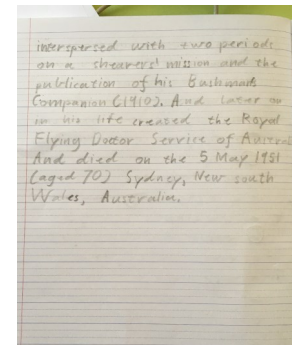 interspersed with two periods
on a shearers' mission and the
publication of his Bushman's
Companion (1910). And later on
in his life created the Royal
Flying Doctor Service of
And died on the 5 May 1951
(aged 70) Sydney, New south
Wales, Australia.